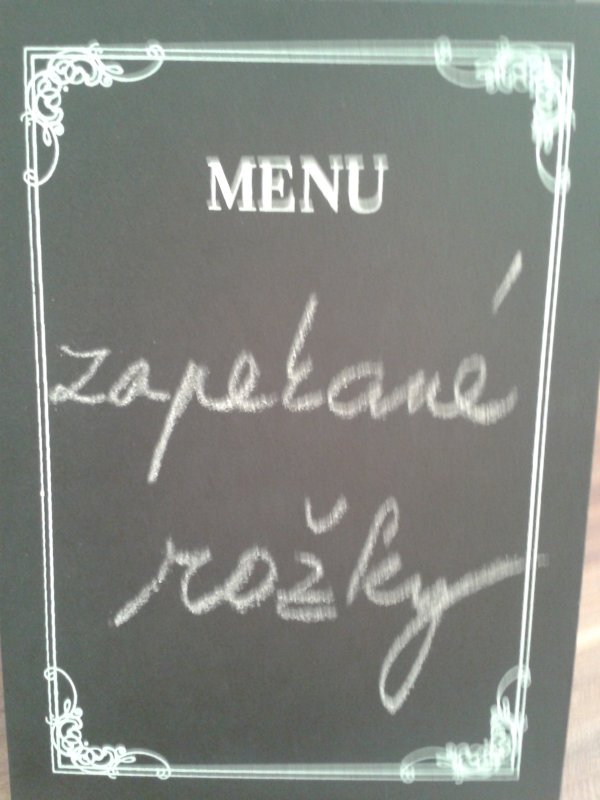 MENU
zapekané
rožky